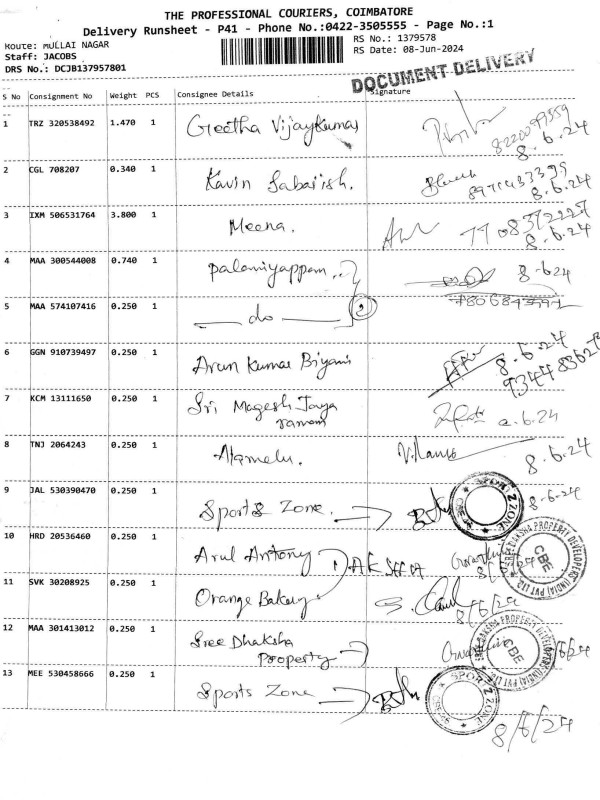 THE PROFESSIONAL COURIERS, COIMBATORE
Delivery Runsheet - P41 - Phone No.:0422-3505555 - Page No.:1
Route: MULLAI NAGAR
RS No.: 1379578
Staff: JACOBS
RS Date: 08-Jun-2024
DRS No.: DCJB137957801
DOCUMENT DELIVERY
S No Consignment No Weight PCS Consignee Details Signature
1 TRZ 320538492 1.470 1 Geetha Vijaykumar
8220099559
8.6.24
2 CGL 708207 0.340 1 Kavin Sabarish.
8.6.24
3 IXM 506531764 3.800 1 Meena.
8.6.24
4 MAA 300544008 0.740 1 Palaniyappam 8.6.24
5 MAA 574107416 0.250 1 do 2
6 GGN 910739497 0.250 1 Arun Kumar Biyani 8.6.24
7 KCM 13111650 0.250 1 Sri Magesh Jaya
ramam 8.6.24
8 TNJ 2064243 0.250 1 Alamelu. 8.6.24
9 JAL 530390470 0.250 1 Sports Zone. 8.6.24
SPORTZ ZONE
10 HRD 20536460 0.250 1 Arul Antony 8/6/24
SREE DAKSHA PROPERTY DEVELOPERS (INDIA) PVT LTD. CBE
11 SVK 30208925 0.250 1 Orange Bakery 8/6/24
12 MAA 301413012 0.250 1 Sree Dhaksha
Property
SREE DAKSHA PROPERTY DEVELOPERS (INDIA) PVT LTD. CBE
13 MEE 530458666 0.250 1 Sports Zone
SPORTZ ZONE
8/6/24